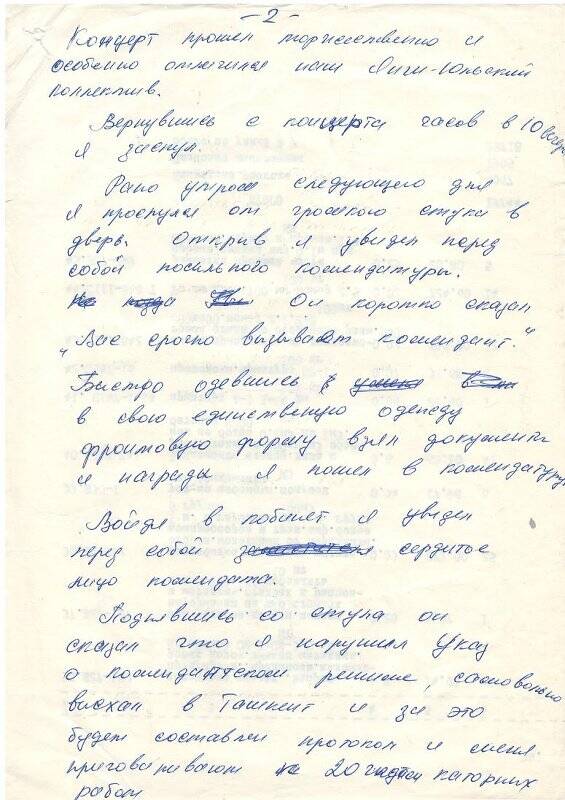 - 2 -
Концерт прошел торжественно и
особенно отличился наш Янги-Юльский
коллектив.
Вернувшись с концерта часов в 10 вечера
я заснул.
Рано утром следующего дня
я проснулся от громкого стука в
дверь. Открив я увидел перед
собой посыльного комендатуры.
Он коротко сказал
"Вас срочно вызывают комендант."
Быстро одевшись
в свою единственую одежду
фронтовую форму взял документы
и награды я пошел в комендатуру
Войдя в кобинет я увидел
перед собой сердитое
лицо коменданта.
Поднявшись со стула он
сказал что я нарушил Указ
о комендантском режиме, самовольно
выехал в Ташкент и за это
будет составлен протокол и меня
приговаривают к 20 годам каторных
работ